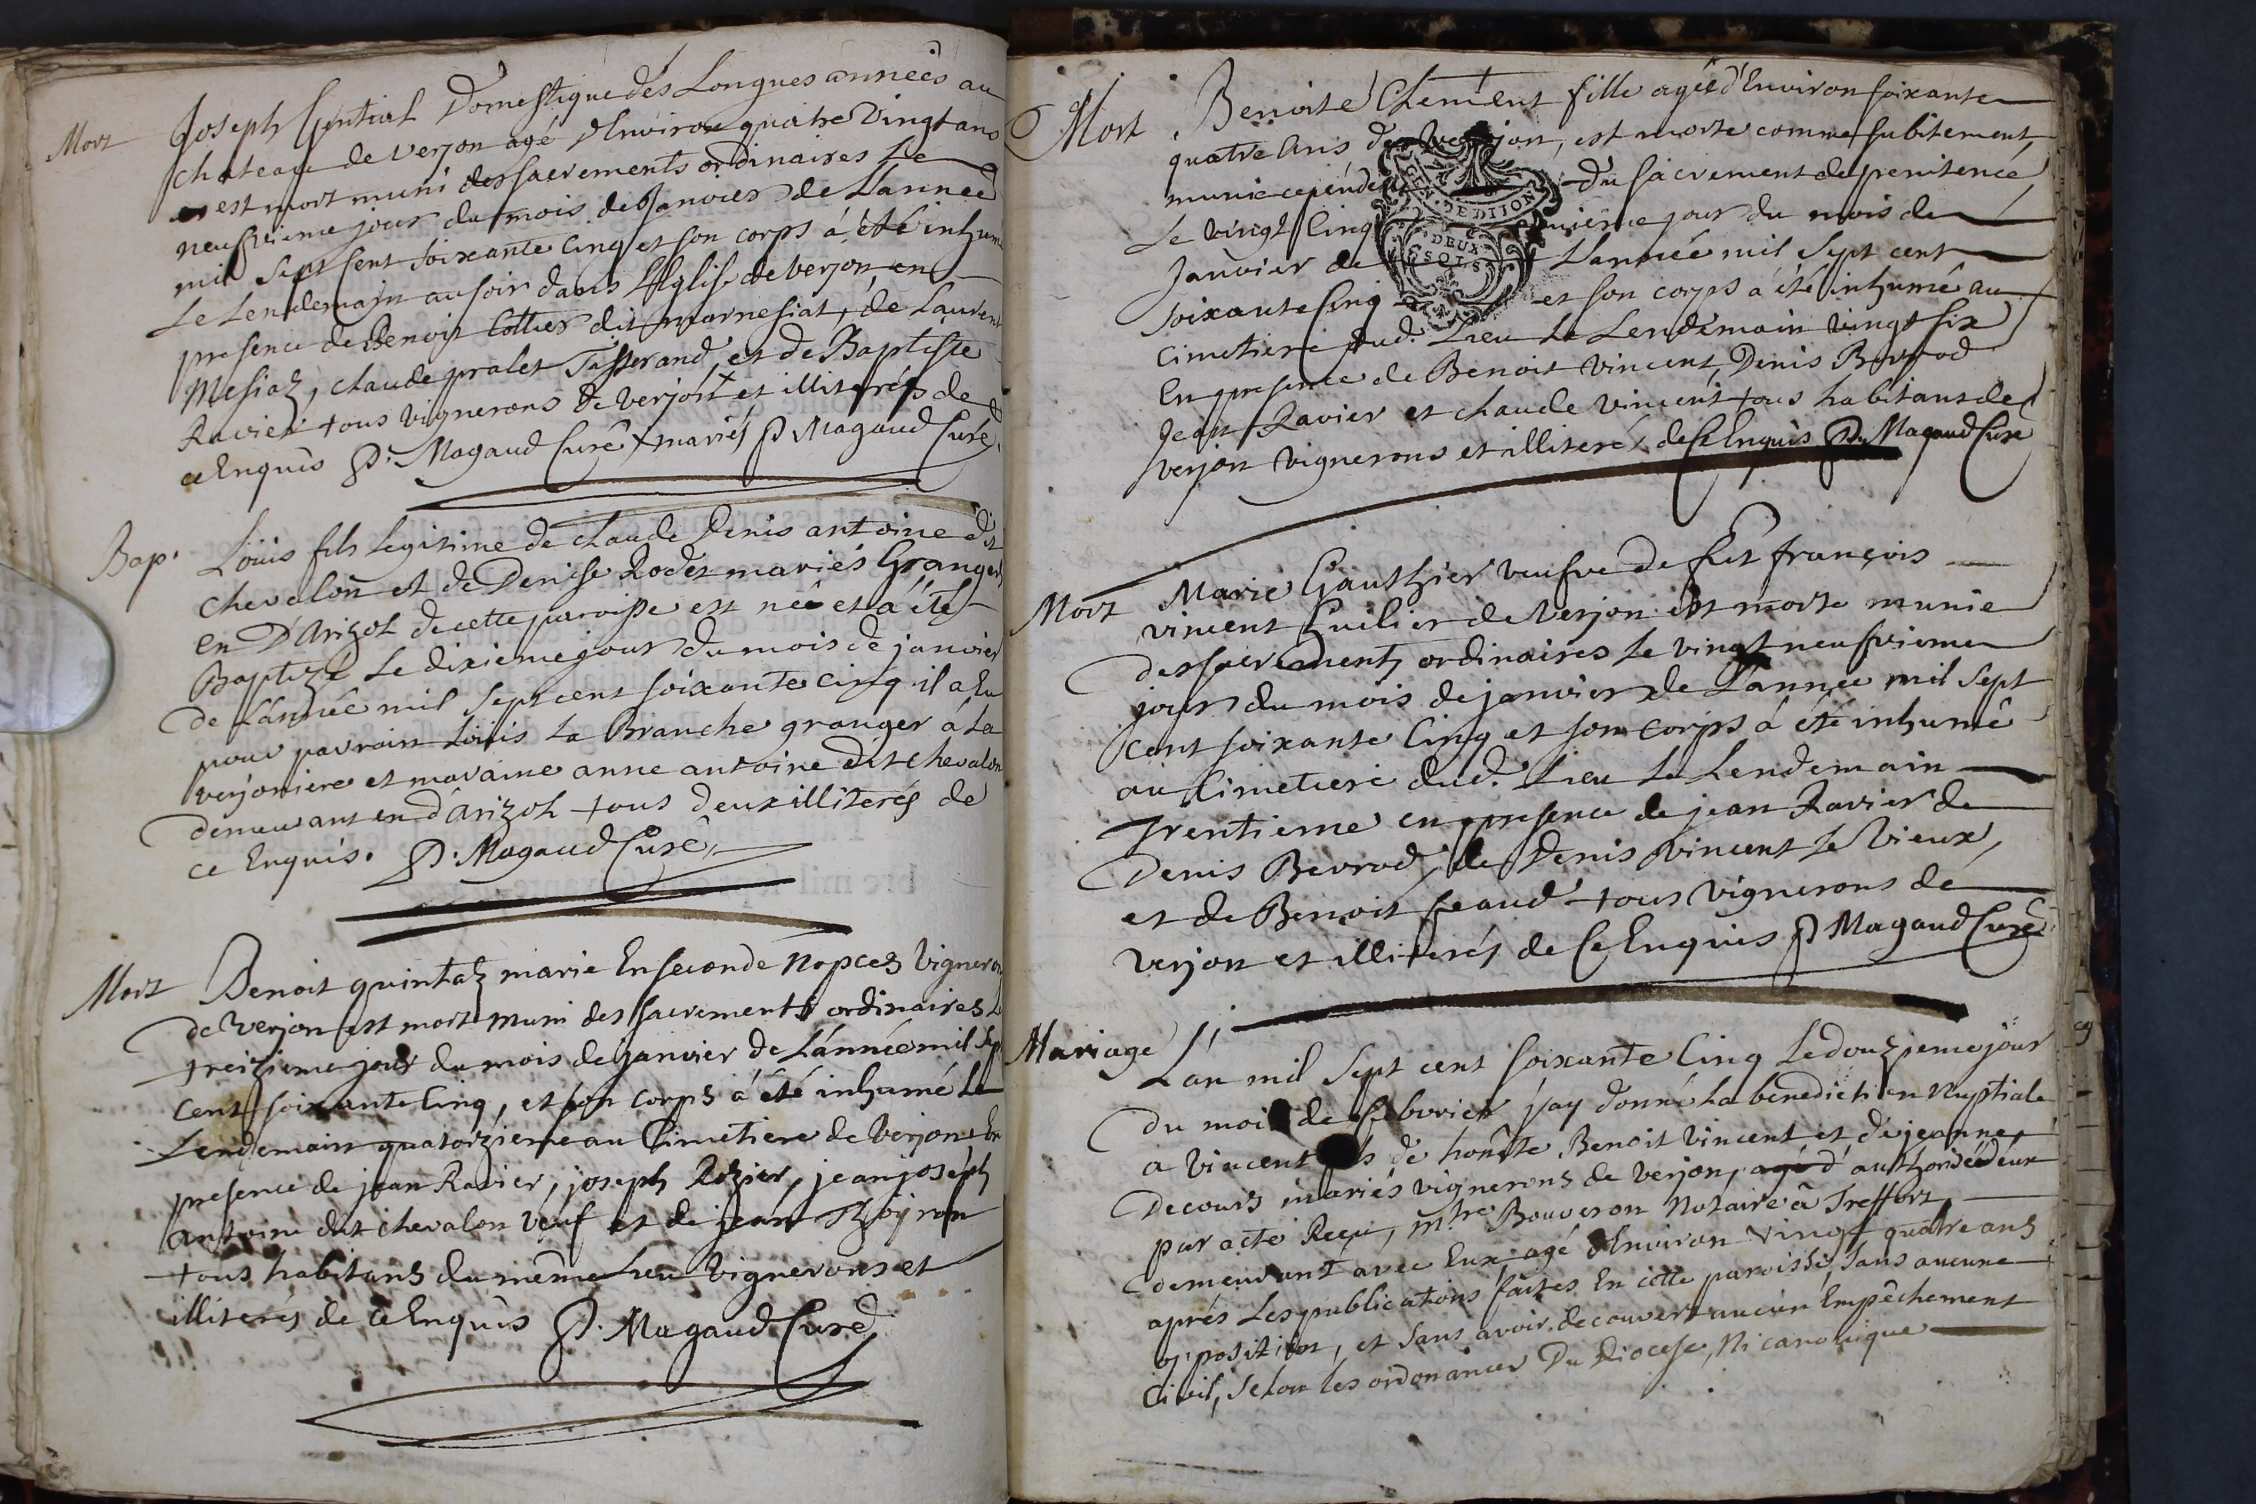 Mort
Joseph Gontier Domestique dès Longues années au
chateau de verjon agé d'Environ quatre vingt ans
est mort muni des sacrements ordinaires le
neufvieme jour du mois de Janvier de L'année
mil sept sent soixante cinq et son corps à été inhumé
Le Lendemain au soir dans L'Eglise de verjon en
presence de Benoist Cottier dit marnesiat, de Laurent
Mesiaz, claude pralet Tisserand et de Baptiste
Ravier tous vignerons de verjon + et illiterés de
ce Enquis P. Magaud Curé + mariés P Magaud Curé
Bap.
Loüis fils Legitime de claude Denis antoine dit
chevalon et de Denise Rodet mariés Granger
en D'Arizol de cette paroisse est né et à été
Baptizé Le dixieme jour du mois de janvier
de L'année mil sept cent soixante cinq il a Eu
pour parrain Loüis La Branche granger à La
verjoniere et maraine anne antoine dit chevalon
demeurant en d'arizol tous deux illiterés de
ce Enquis. P. Magaud Curé
Mort
Benoit quintaz marie En seconde nopces vigneron
de verjon est mort muni des sacrements ordinaires Le
treizieme jour du mois de janvier de L'année mil sept
cent soixante Cinq, et son corps à été inhumé Le
Lendemain quatorzieme au Cimetiere de Verjon En
presence de jean Ravier, joseph Rozier, jean joseph
antoine dit chevalon veuf et de jean Thoÿron
tous habitans du même Lieu vignerons et
illiterés de ce Enquis P. Magaud Curé
Mort
Benoite Clement fille agée d'Environ soixante
quatre Ans de Verjon, est morte comme subitement,
munie cependent du sacrement de penitence
Le vingt Cinq jour du mois de
Janvier de L'année mil sept cent
soixante Cinq et son corps à été inhumé au
cimetiere dud. Lieu Le Lendemain vingt six
En presence de Benoit vincent, Denis Bevrod
Jean Ravier et claude vincent tous habitans de
verjon vignerons et illiterés de Ce Enquis P. Magaud Curé
Mort
Marie Gauthier veufve de feu françois
vincent huilier de Verjon est morte munie
des sacrements ordinaires le vingt neufvieme
jour du mois de janvier de L'année mil sept
cent soixante Cinq et son corps à été inhumé
au Cimetiere dud. Lieu Le Lendemain
Trentieme en presence de jean Ravier de
Denis Bevrod, de Denis vincent le Vieux,
et de Benoit feaud tous vignerons de
verjon et illiterés de Ce Enquis P Magaud Curé
Mariage
L'an mil sept cent soixante Cinq Le douzieme jour
du mois de febvrier j'ay donné La benediction Nuptiale
a vincent fils de honête Benoit vincent et de jeanne
Decours mariés vignerons de verjon, agé d' authorisé d'eux
par acte Reçu, mtre Bouveron Notaire à Treffort,
demeurant avec Eux, agé d'Environ vingt quatre ans
aprés Les publications faites En cette paroisse, sans aucune
opposition, et sans avoir decouvert aucun Empêchement
Civil, selon les ordonances Du Diocese, Ni canonique
GEN. DE DIJON
DEUX
SOLS